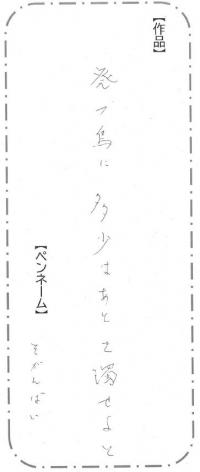 【作品】
発つ鳥に 多少はあとを濁せよと
【ペンネーム】
そがんばい